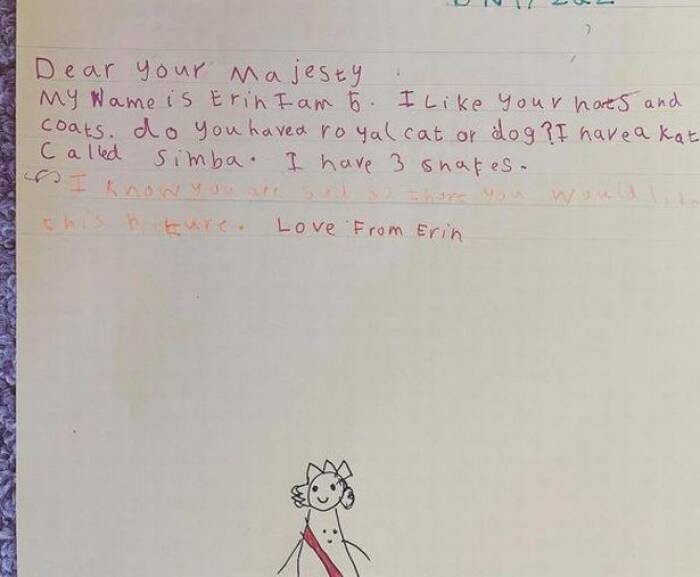 Dear your Majesty
My Name is Erin I am 5. I Like your hats and
coats. do you have a royal cat or dog? I have a kat
Called Simba. I have 3 snakes.
I know you are sad so you would like
this picture. Love From Erin